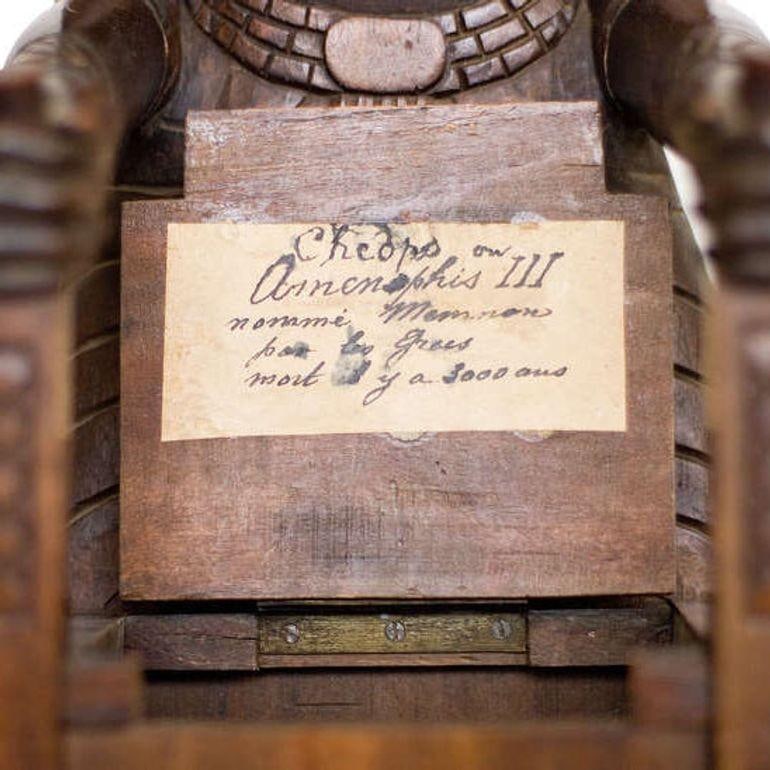 Cheops ou
Amenophis III
nommé Memnon
par les Grecs
mort il y a 3000 ans